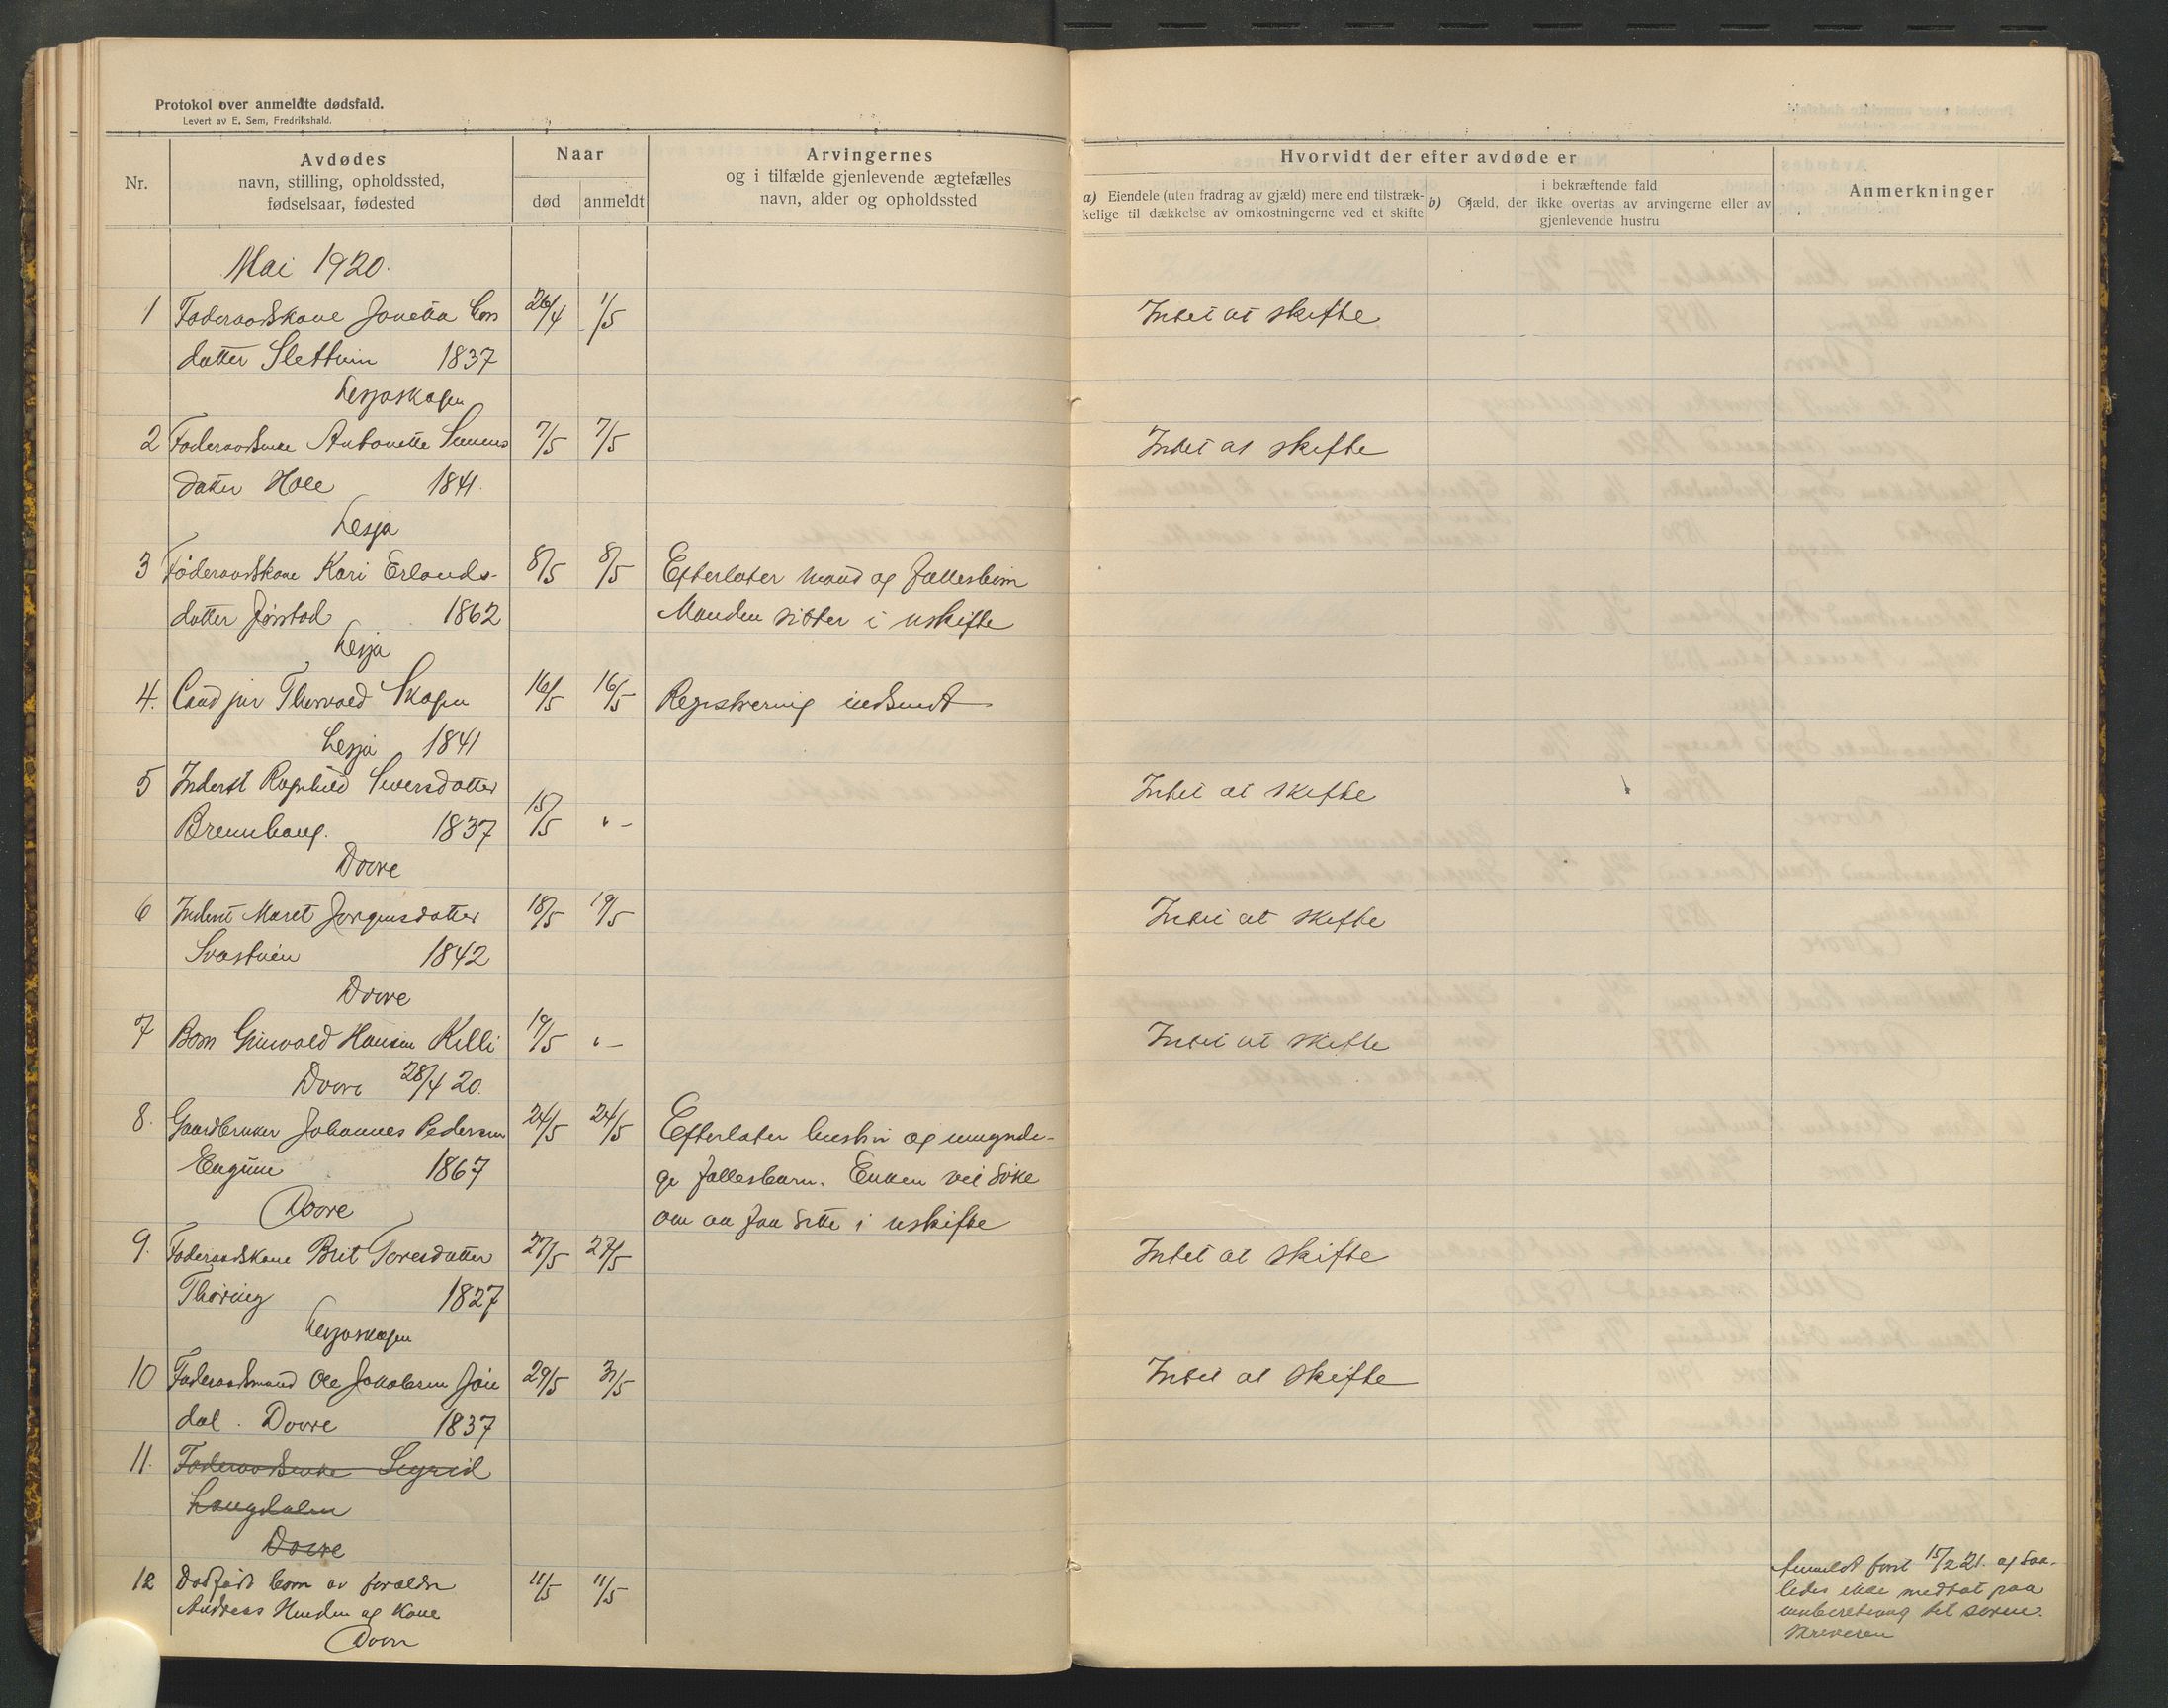 Protokol over anmeldte dødsfald.
Levert av E. Sem, Fredrikshald.
Nr.
Avdødes
navn, stilling, opholdssted,
fødselsaar, fødested
Naar
død
anmeldt
Arvingernes
og i tilfælde gjenlevende ægtefælles
navn, alder og opholdssted
Hvorvidt der efter avdøde er
a) Eiendele (uten fradrag av gjæld) mere end tilstræk-
kelige til dækkelse av omkostningerne ved et skifte
i bekræftende fald
b) Gjæld, der ikke overtas av arvingerne eller av
gjenlevende hustru
Anmerkninger
Mai 1920.
1 Føderaadskone Jonetta
26/4 1/5 Intet at skifte
datter Slettuin 1837
Lesjaskogen
2 Antonette 7/5 7/5 Intet at skifte
datter Hole 1841.
Lesja
3 Føderaadskone Kari Erlands- 8/5 8/5 Efterlater mand og
datter Jørstad 1862 Manden sitter i uskifte
Lesja
4. Cand jur Thorvald Skogen 16/5 16/5 Registrering indsendt
Lesja 1841
5 Inderst Ragnhild Siversdatter Intet at skifte
Brennhaug. 1837 15/5 " -
Dovre
6 Inderst Maret Jørgensdatter 18/5 19/5 Intet at skifte
1842
Dovre
7 Barn Hansen Killi 19/5 " - Intet at skifte
Dovre 28/4 20.
8. Gaardbruker Johannes Pedersen 24/5 24/5 Efterlater hustru og umyndi-
1867 ge fællesbarn. Enken vil søke
Dovre om aa faa sitte i uskifte
9. Føderaadskone Brit Toresdatter 27/5 27/5 Intet at skifte
Thøring 1827
Lesjaskogen
10 Føderaadsmand Ole Jakobsen Jøn 29/5 31/5 Intet at skifte
dal. Dovre 1837
11. Føderaadsenke Sigrid
Langdalen
Dovre
12 Dødfødt barn av forældre 11/5 11/5 Anmeldt først 15/2 21. og saa-
Andreas og kone ledes ikke medtat paa
Dovre innberetning til soren-
skriveren